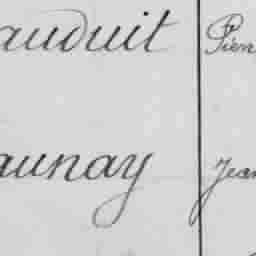 auduit Pier
aunay Jean